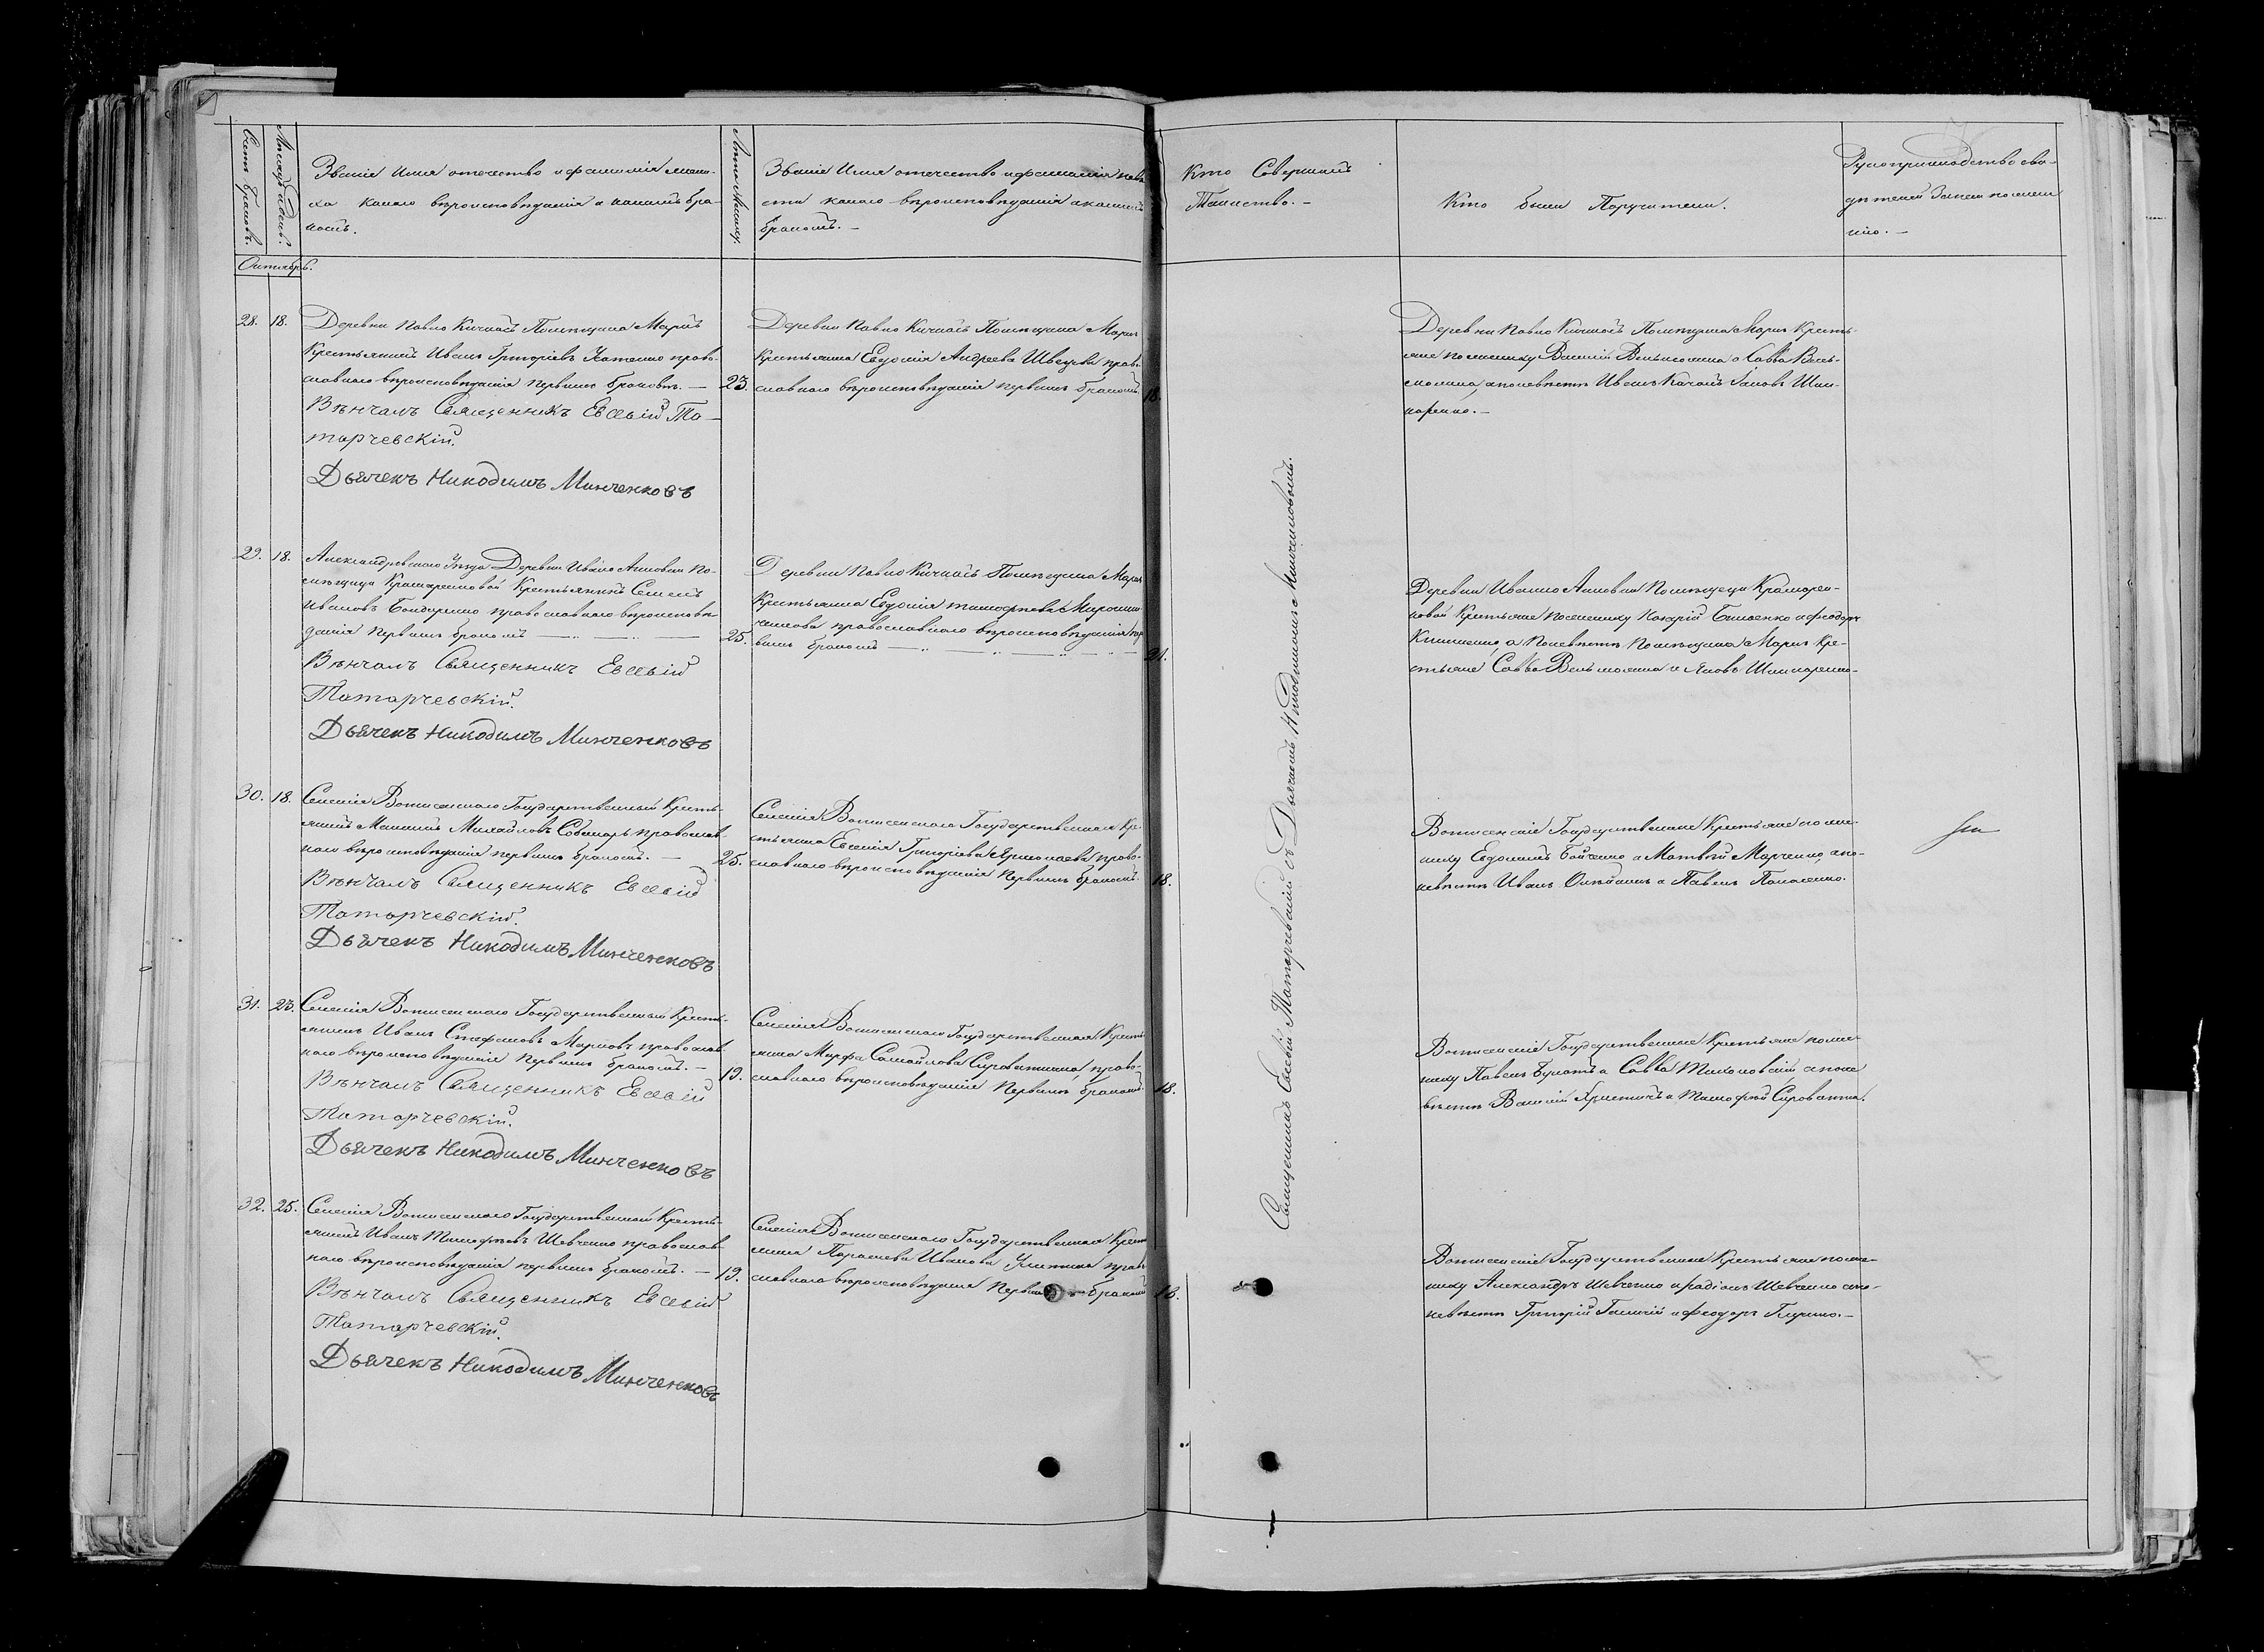 Счетъ браковъ.
Мѣсяцъ и день.
Званія Имя отечество и фамилія жени-
ха какаго вѣроисповѣданія и какимъ бра-
комъ.
Лѣта Жениху.
Званія Имя отечество и фамилія невѣ
сти какаго вѣроисповѣданія и какимъ
бракомъ. —
Кто Совершалъ
Таинство. —
Кто были Поручители.
Рукоприкладство сви-
дѣтелей Записи по жела
нію. —
Октябрь.
28. 18.
Деревни Павло Кичкасъ Помѣщика Маркъ
Крестьянинъ Иванъ Григоріевъ право-
славнаго вѣроисповѣданія первымъ бракомъ. —
Вѣнчалъ Священникъ Евсевій Та-
тарчевскій.
Дьячекъ Никодимъ Минченковъ
23.
Деревни Павло Кичкасъ Помѣщика Маркъ
Крестьянка Евдокія Андреева Швецова право
славнаго вѣроисповѣданія первымъ бракомъ.
18.
Деревни Павло Кичкасъ Помѣщика Маркъ Кресть-
яне по жениху Василій и Савва
а по невѣсте Иванъ Качанъ Іаковъ Шин-
каренко. —
29. 18.
Александровскаго Уѣзда Деревни Ивано Анновки По-
мѣщицы Крамаревой Крестьянинъ Семенъ
Ивановъ Бондаренко православнаго вѣроисповѣ-
данія первымъ бракомъ
Вѣнчалъ Священникъ Евсевій
Татарчевскій.
Дьячекъ Никодимъ Минченковъ
25.
Деревни Павло Кичкасъ Помѣщика Маркъ
Крестьянка Евдокія Тимофѣева Мирошни
ченкова православнаго вѣроисповѣданія пер
вымъ бракомъ
21.
Деревни Ивано Анновки Помѣщици Крамаре-
вой Крестьяне по жениху и Феодоръ
а по невѣсте Помѣщика Маркъ Кре-
стьяне Савва и Яковъ Шинкаренко-
30. 18.
Селенія Вознесенскаго Государственный Кресть-
янинъ Михайловъ православ-
наго вѣроисповѣданія первымъ бракомъ. —
Вѣнчалъ Священникъ Евсевій
Татарчевскій.
Дьячекъ Никодимъ Минченковъ
25.
Селенія Вознесенскаго Государственная Кре-
стьянка Евгенія Григоріева Ермолаева право-
славнаго вѣроисповѣданія первымъ бракомъ.
18.
Вознесенскіе Государственные Крестьяне по же-
ниху Евдокимъ Бойченко и Матвѣй Марченко, а по
невѣсте Иванъ и Павелъ Панасенко.
31. 23.
Селенія Вознесенскаго Государственный Кресть-
янинъ Иванъ Стефановъ Марковъ православ-
наго вѣроисповѣданія первымъ бракомъ. —
Вѣнчалъ Священникъ Евсевій
Татарчевскій.
Дьячекъ Никодимъ Минченковъ
19.
Селенія Вознесенскаго Государственная Кресть
янка Марфа Самойлова Сироваткина право-
славнаго вѣроисповѣданія Первымъ бракомъ.
18.
Вознесенскіе Государственные Крестьяне по же-
ниху Павелъ и Савва а по не
вѣсте Василій и Тимофѣй Сироватка.
32. 25.
Селенія Вознесенскаго Государственный Кресть-
янинъ Иванъ Тимофѣевъ Шевченко православ-
наго вѣроисповѣданія первымъ бракомъ. —
Вѣнчалъ Священникъ Евсевій
Татарчевскій.
Дьячекъ Никодимъ Минченковъ
19.
Селенія Вознесенскаго Государственная Кресть
янка Параскева Иванова Улиткина право
славнаго вѣроисповѣданія Первымъ бракомъ
18.
Вознесенскіе Государственные Крестьяне по же-
ниху Александръ Шевченко и Радіонъ Шевченко а по
невѣсте Григорій и Феодоръ
Священникъ Евсевій Татарчевскій съ Дьячкомъ Никодимомъ Минченковымъ.